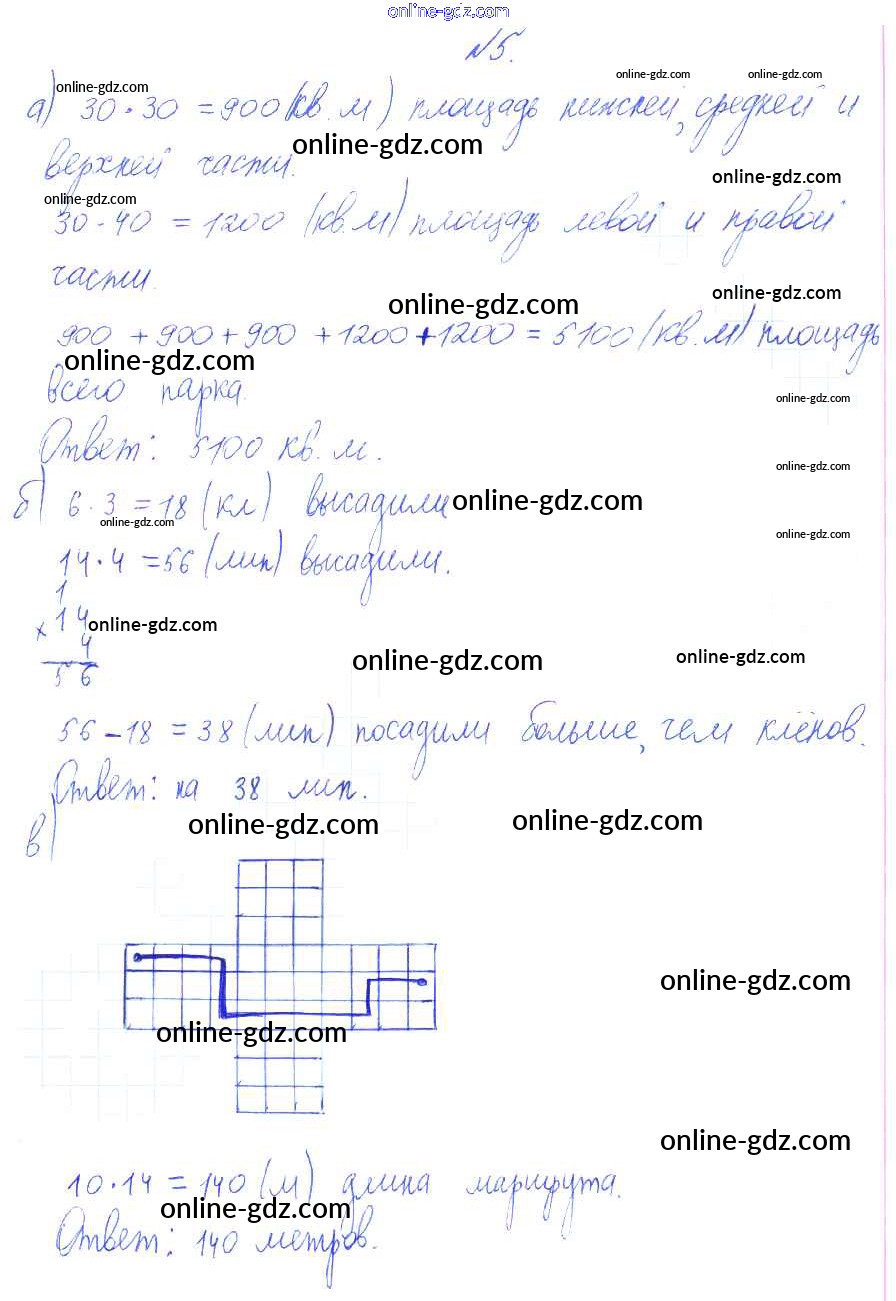 online-gdz.com
№5.
online-gdz.com online-gdz.com online-gdz.com
а) 30·30 = 900 (кв. м) площадь нижней, средней и
online-gdz.com
верхней части.
online-gdz.com
online-gdz.com
30·40 = 1200 (кв. м) площадь левой и правой
части.
online-gdz.com
online-gdz.com
900 + 900 + 900 + 1200 + 1200 = 5100 (кв. м) площадь
online-gdz.com
всего парка.
online-gdz.com
Ответ: 5100 кв. м.
online-gdz.com
б) 6·3 = 18 (кл) высадили
online-gdz.com
online-gdz.com
online-gdz.com
14·4 = 56 (лип) высадили.
1
× 14
online-gdz.com
4
56
online-gdz.com
online-gdz.com
56 - 18 = 38 (лип) посадили больше, чем клёнов.
Ответ: на 38 лип.
online-gdz.com
online-gdz.com
в)
online-gdz.com
online-gdz.com
online-gdz.com
10·14 = 140 (м) длина маршрута.
online-gdz.com
Ответ: 140 метров.